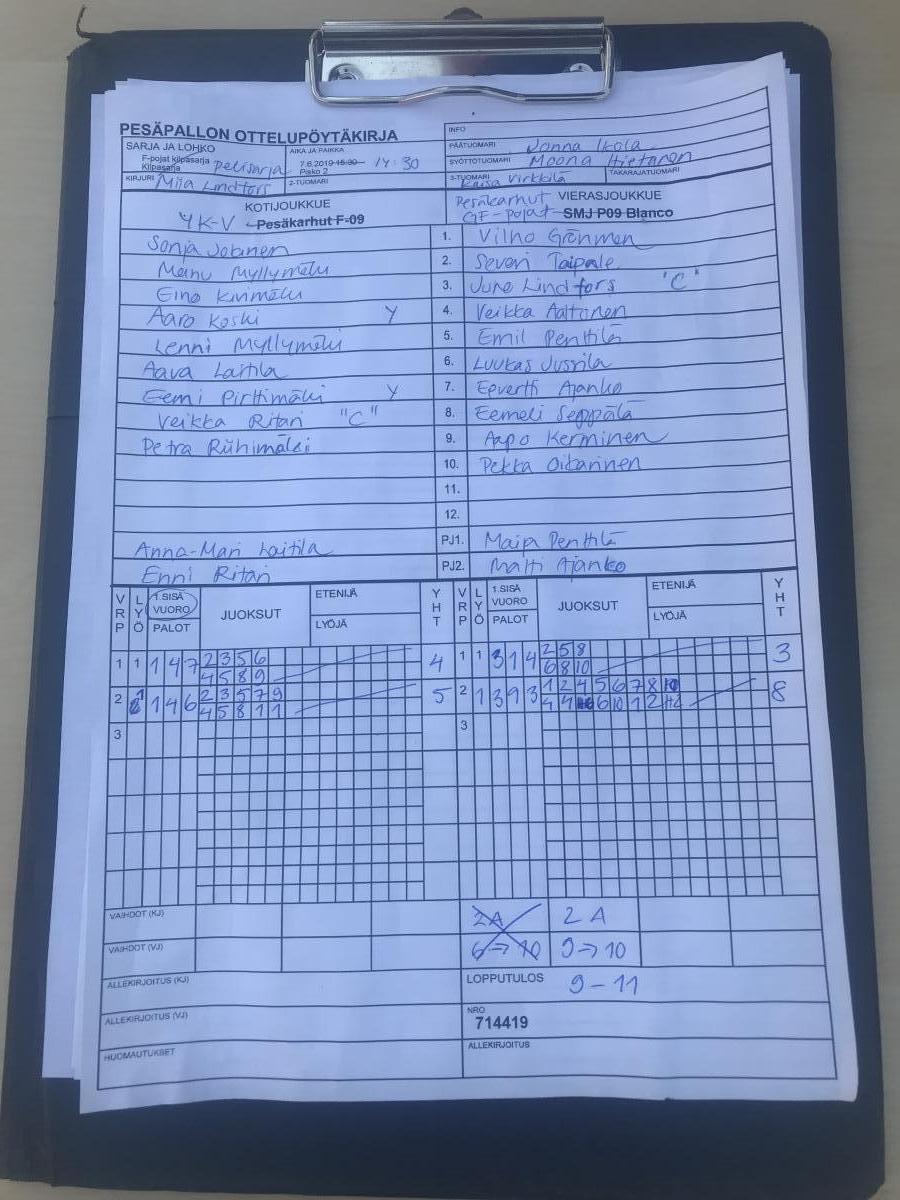 PESÄPALLON OTTELUPÖYTÄKIRJA
INFO
SARJA JA LOHKO
F-pojat kilpasarja
Kilpasarja
pelisarja
AIKA JA PAIKKA
7.6.2019 15:30 14:30
Pisko 2
PÄÄTUOMARI Jonna Ikola
SYÖTTÖTUOMARI Moona Hietanen
KIRJURI Miia Lindfors
2-TUOMARI
3-TUOMARI Kaisa Virkkilä
TAKARAJATUOMARI
KOTIJOUKKUE
YK-V Pesäkarhut F-09
VIERASJOUKKUE
Pesäkarhut
GF-pojat SMJ P09 Blanco
Sonja Jokinen 1. Vilho Grönmen
Manu Myllymäki 2. Severi Taipale
Eino Kivimäki 3. Juno Lindfors "C"
Aaro Koski Y 4. Veikka Aaltonen
Lenni Myllymäki 5. Emil Penttilä
Aava Laitila 6. Luukas Jussila
Eemi Pirttimäki Y 7. Eevertti Ajanko
Veikka Ritari "C" 8. Eemeli Seppälä
Petra Riihimäki 9. Aapo Kerminen
10. Pekka Oikarinen
11.
12.
Anna-Mari Laitila PJ1. Maija Penttilä
Enni Ritari PJ2. Matti Ajanko
VRP LYÖ 1.SISÄ VUORO PALOT JUOKSUT ETENIJÄ LYÖJÄ YHT VRP LYÖ 1.SISÄ VUORO PALOT JUOKSUT ETENIJÄ LYÖJÄ YHT
1 1 1 4 7 2 3 5 6 4 1 1 3 1 4 2 5 8 3
4 5 8 9 6 8 10
2 1 4 6 2 3 5 7 9 5 2 1 3 9 3 1 2 4 5 6 7 8 10 8
4 5 8 1 1 4 4 6 10 1 2
3 3
VAIHDOT (KJ) 2A 2A
VAIHDOT (VJ) 6→10 9→10
ALLEKIRJOITUS (KJ) LOPPUTULOS 9-11
ALLEKIRJOITUS (VJ) NRO
714419
HUOMAUTUKSET ALLEKIRJOITUS